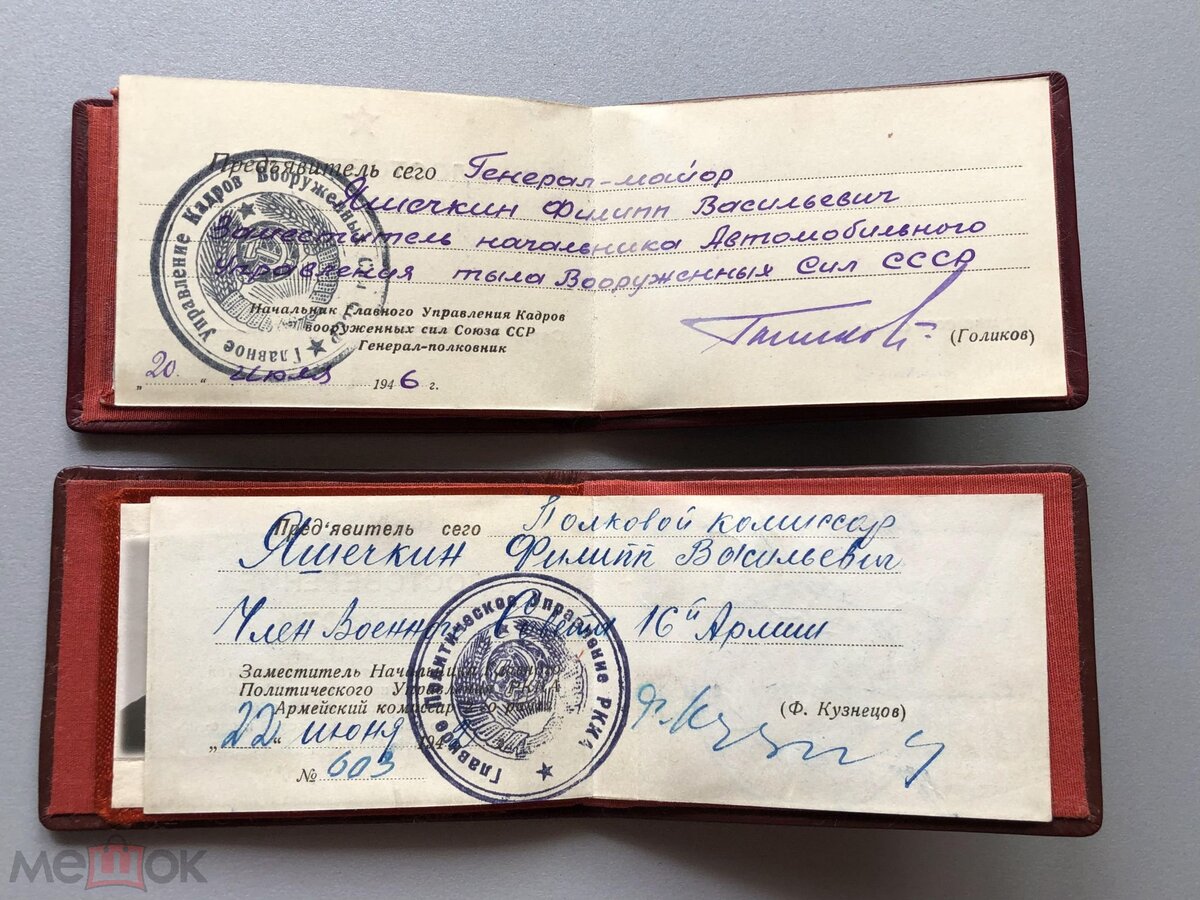 Предъявитель сего Генерал-майор
Яшечкин Филипп Васильевич
Заместитель начальника Автомобильного
Управления тыла Вооруженных Сил СССР
Главное Управление Кадров Вооруженных Сил
Начальник Главного Управления Кадров
вооруженных сил Союза ССР
Генерал-полковник
(Голиков)
„20“ июля 1946 г.
Пред'явитель сего Полковой комиссар
Яшечкин Филипп Васильевич
Член Военного Совета 16й Армии
Главное Политическое Управление РККА
Заместитель Начальника
Политического Управления РККА
Армейский комиссар
(Ф. Кузнецов)
„22“ июня 194
№ 603
мешок